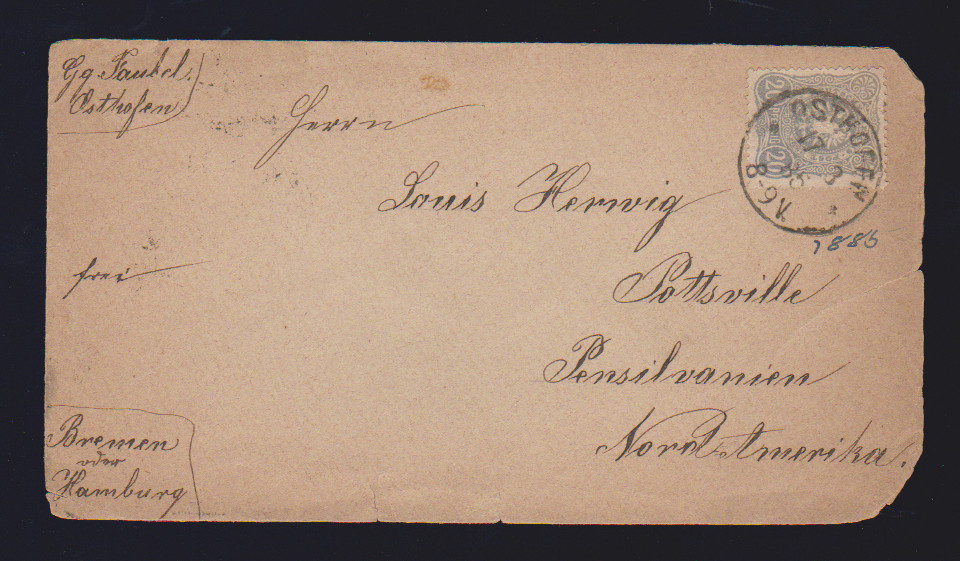 Gg. Faubel.
Osthofen
Herrn
Louis Herwig
frei
Pottsville
Pensilvanien
Nord-Amerika.
Bremen
oder
Hamburg
20
20
OSTHOFEN
17 3
85
8-9V.
1885